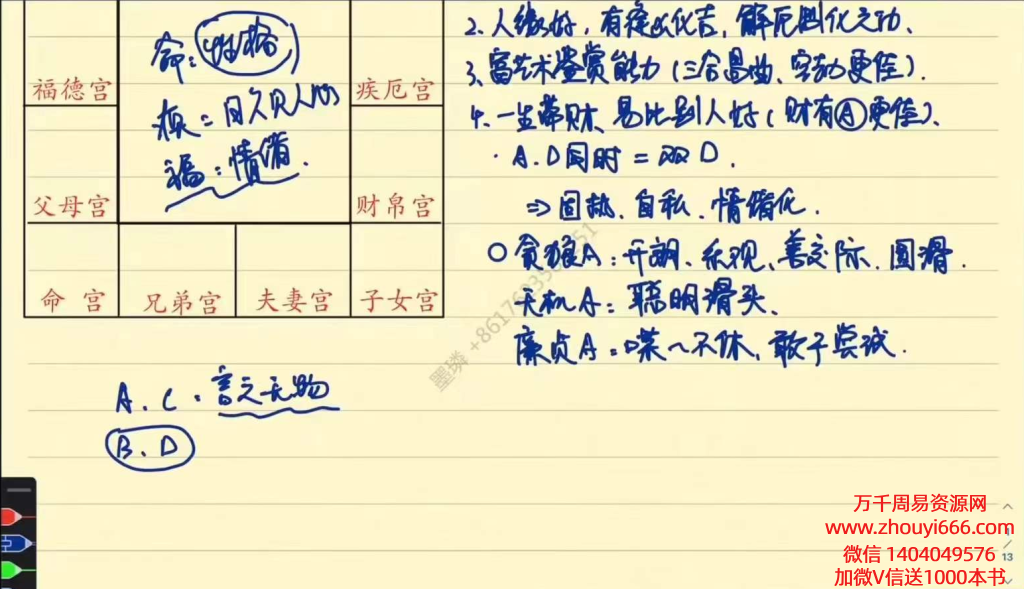 福德宫
疾厄宫
父母宫
财帛宫
命 宫
兄弟宫
夫妻宫
子女宫
命：性格
疾=日久见人心
福：情绪.
A. C. 言之无物
B. D
2. 人缘好，有逢凶化吉，解厄制化之功、
3. 富艺术鉴赏能力（三合昌曲、
更佳）.
4. 一生带财、易比别人好（财有A更佳）、
· A.D同时=双D.
⇒固执、自私、情绪化.
○贪狼A：开朗、乐观、善交际、圆滑.
天机A：聪明滑头、
廉贞A：喋~不休、敢于尝试.
墨璘 +8617
万千周易资源网
www.zhouyi666.com
微信 1404049576
13
加微V信送1000本书